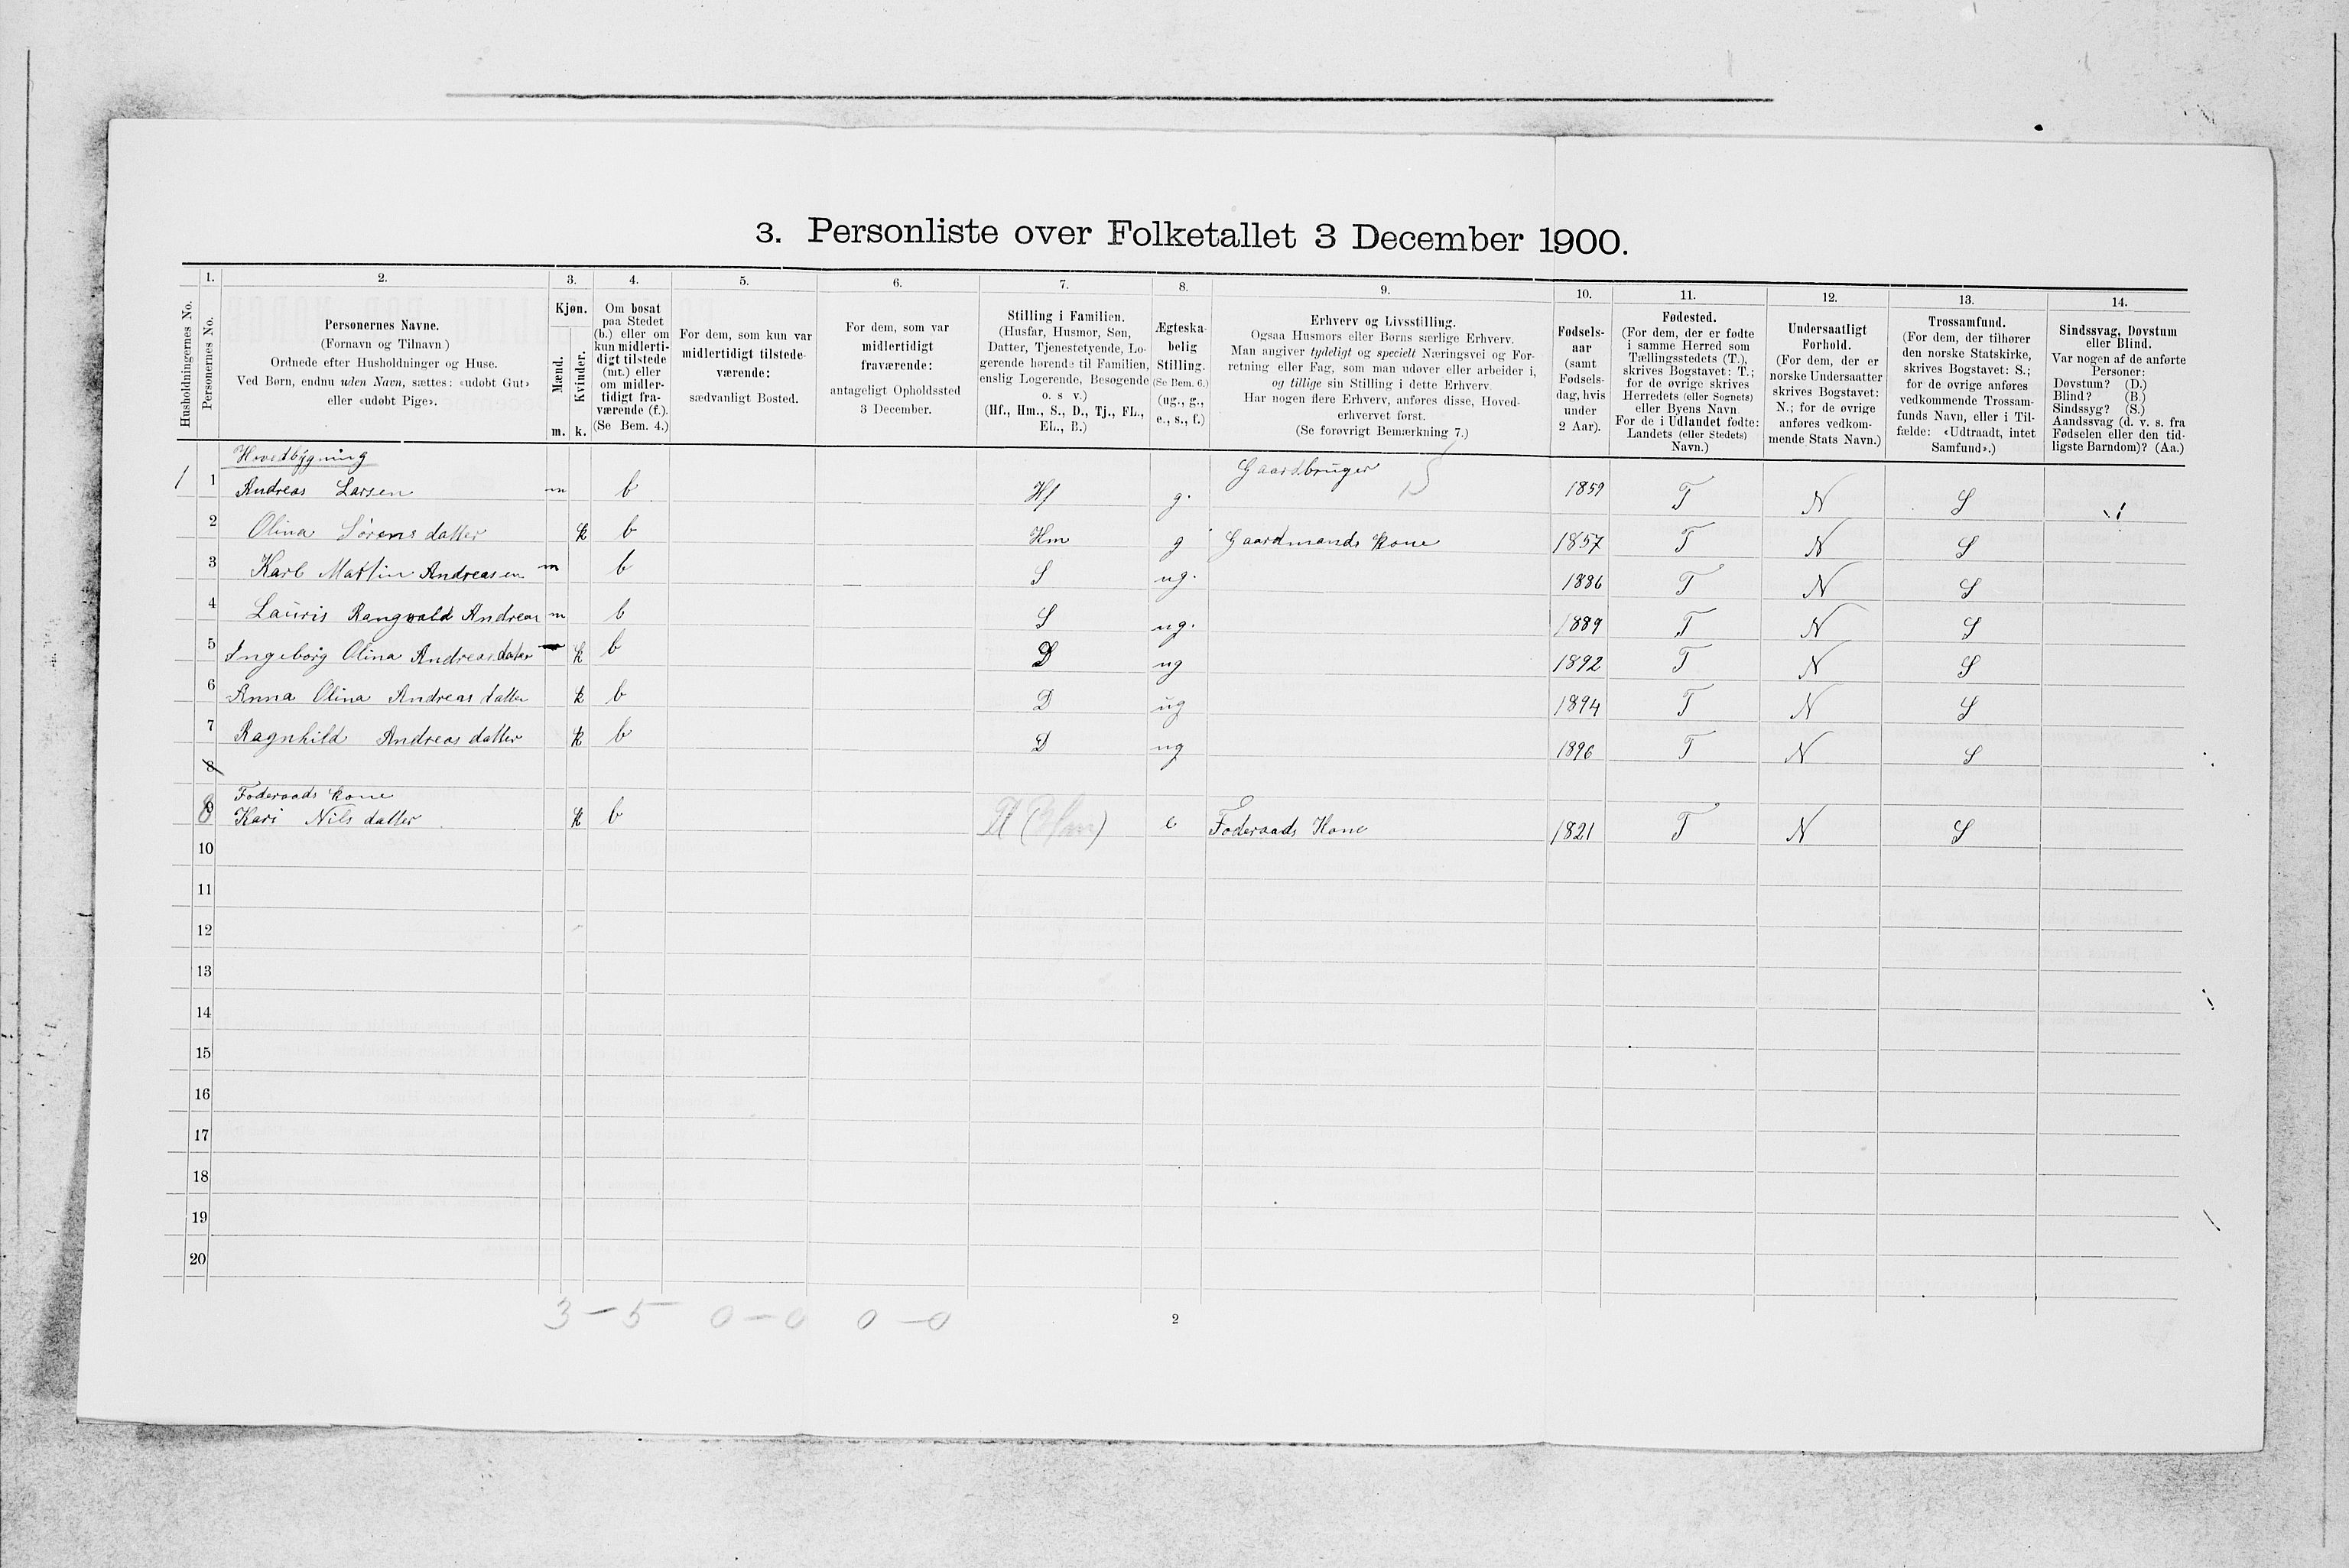 3. Personliste over Folketallet 3 December 1900.
Husholdningernes No.
1.
Personernes No.
2.
Personernes Navne.
(Fornavn og Tilnavn)
Ordnede efter Husholdninger og Huse.
Ved Børn, endnu uden Navn, sættes: «udøbt Gut»
eller «udøbt Pige».
3.
Kjøn.
Mænd.
Kvinder.
m. k.
4.
Om bosat
paa Stedet
(b.) eller om
kun midlerti-
digt tilstede
(mt.) eller
om midler-
tidigt fra-
værende (f.).
(Se Bem. 4.)
5.
For dem, som kun var
midlertidigt tilstede-
værende:
sædvanligt Bosted.
6.
For dem, som var
midlertidigt
fraværende:
antageligt Opholdssted
3 December.
7.
Stilling i Familien.
(Husfar, Husmor, Søn,
Datter, Tjenestetyende, Lo-
gerende hørende til Familien,
enslig Logerende, Besøgende
o. s v.)
(Hf., Hm., S., D., Tj., FL.,
EL., B.)
8.
Ægteska-
belig
Stilling.
(Se Bem. 6.)
(ug., g.,
e., s., f.)
9.
Erhverv og Livsstilling.
Ogsaa Husmors eller Børns særlige Erhverv.
Man angiver tydeligt og specielt Næringsvei og For-
retning eller Fag, som man udøver eller arbeider i,
og tillige sin Stilling i dette Erhverv.
Har nogen flere Erhverv, anføres disse, Hoved-
erhvervet først.
(Se forøvrigt Bemærkning 7.)
10.
Fødsels-
aar
(samt
Fødsels-
dag, hvis
under
2 Aar).
11.
Fødested.
(For dem, der er fødte
i samme Herred som
Tællingsstedets (T.),
skrives Bogstavet: T.;
for de øvrige skrives
Herredets (eller Sognets)
eller Byens Navn.
For de i Udlandet fødte:
Landets (eller Stedets)
Navn.)
12.
Undersaatligt
Forhold.
(For dem, der er
norske Undersaatter
skrives Bogstavet:
N.; for de øvrige
anføres vedkom-
mende Stats Navn.)
13.
Trossamfund.
(For dem, der tilhører
den norske Statskirke,
skrives Bogstavet: S.;
for de øvrige anføres
vedkommende Trossam-
funds Navn, eller i Til-
fælde: «Udtraadt, intet
Samfund».)
14.
Sindssvag, Døvstum
eller Blind.
Var nogen af de anførte
Personer:
Døvstum? (D.)
Blind? (B.)
Sindssyg? (S.)
Aandssvag (d. v. s. fra
Fødselen eller den tid-
ligste Barndom)? (Aa.)
Hovedbygning
1 1 Andreas Larsen m b Hf g. Gaardbruger 1859 T N S
2 Olina Sørens datter k b Hm g Gaardmands kone 1857 T N S
3 Karl Martin Andreasen m b S ug. 1886 T N S
4 Lauris Rangvald Andreas m b S ug. 1889 T N S
5 Ingeborg Olina Andreas datter k b D ug 1892 T N S
6 Anna Olina Andreas datter k b D ug 1894 T N S
7 Ragnhild Andreas datter k b D ug 1896 T N S
8
Foderaads kone
8 Kari Nils datter k b e Foderaads Kone 1821 T N S
10
11
12
13
14
15
16
17
18
19
20
3 – 5 0 – 0 0 – 0
2